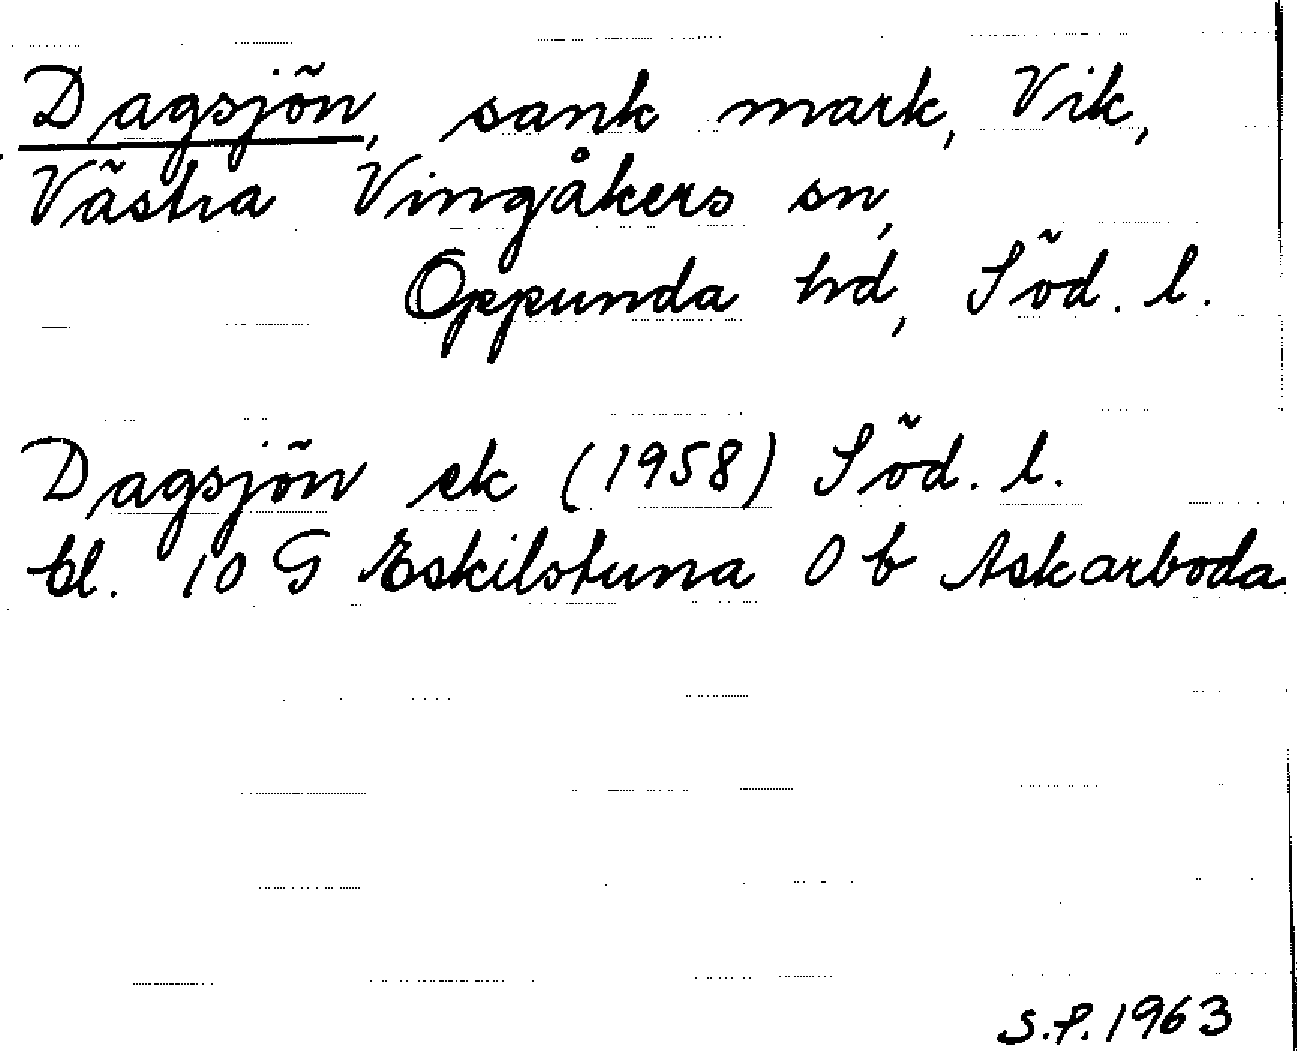 Dagsjön, sank mark, Vik,
Västra Vingåkers sn,
Oppunda hd, Söd. l.
Dagsjön ek (1958) Söd. l.
bl. 10 G Eskilstuna 0 b Askarboda
S.P. 1963